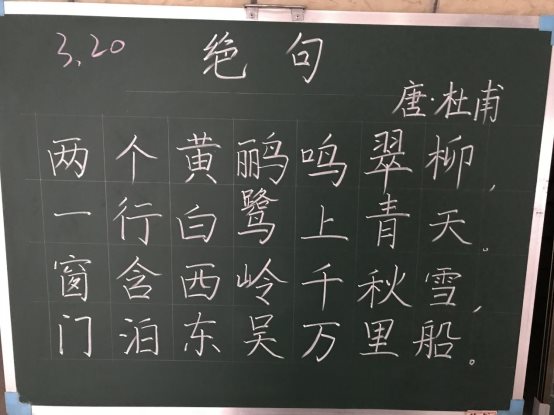 3.20
绝句
唐·杜甫
两个黄鹂鸣翠柳,
一行白鹭上青天。
窗含西岭千秋雪,
门泊东吴万里船。